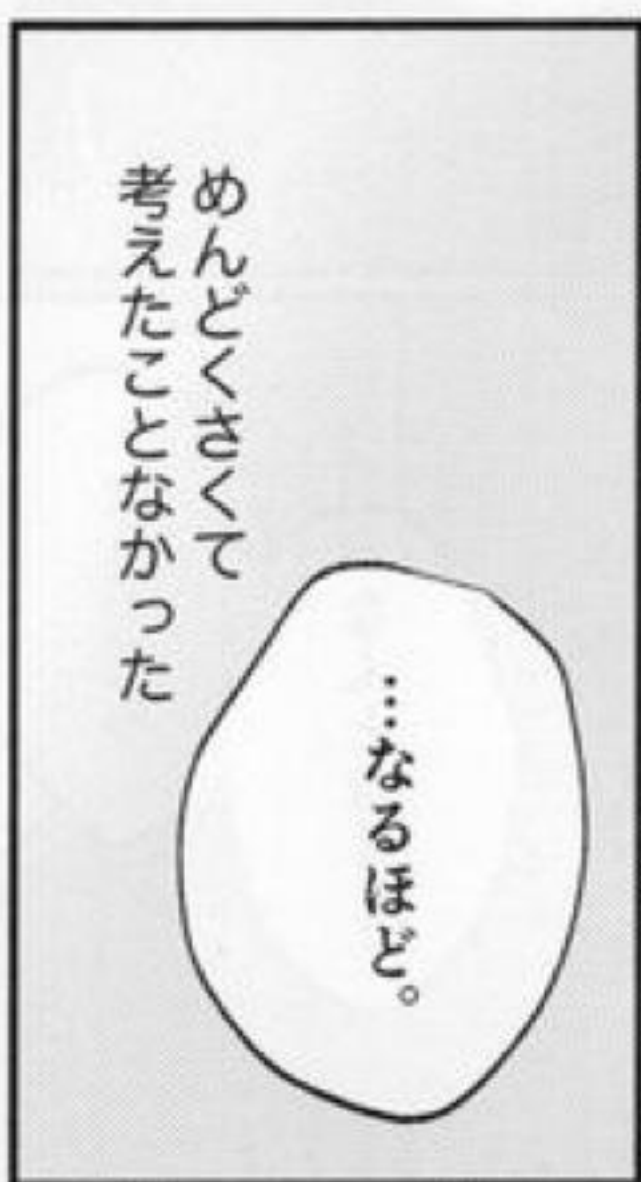 …なるほど。
めんどくさくて
考えたことなかった